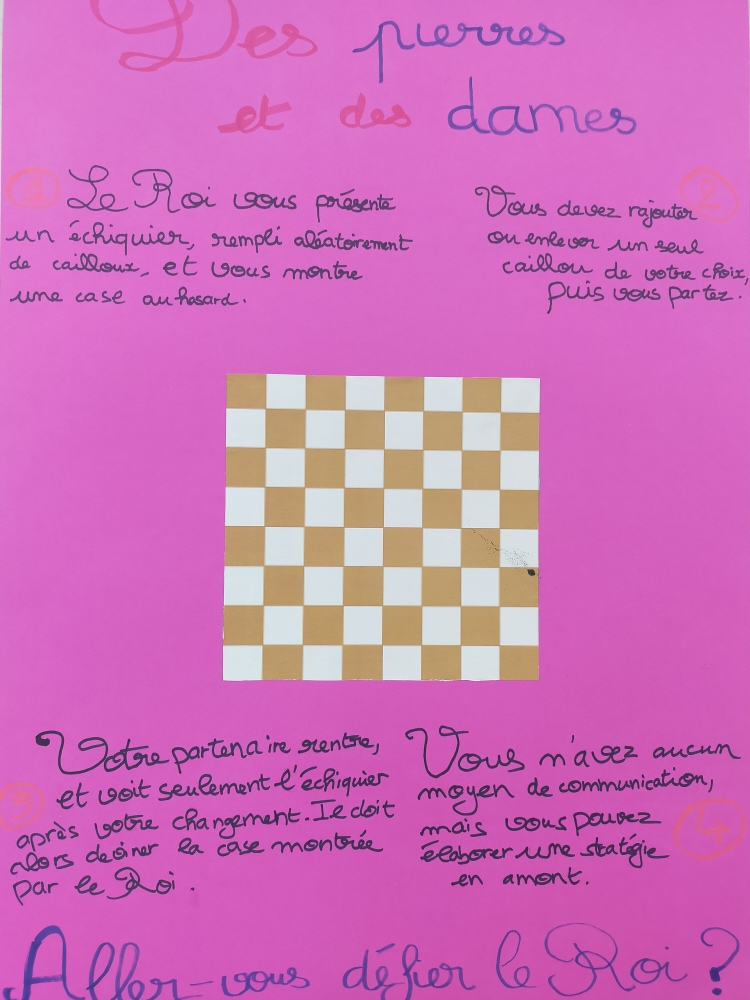 Des pierres
et des dames
1
Le Roi vous présente
un échiquier, rempli aléatoirement
de cailloux, et vous montre
une case au hasard.
2
Vous devez rajouter
ou enlever un seul
caillou de votre choix,
puis vous partez.
3
Votre partenaire rentre,
et voit seulement l'échiquier
après votre changement. Il doit
alors deviner la case montrée
par le Roi.
4
Vous n'avez aucun
moyen de communication,
mais vous pouvez
élaborer une statégie
en amont.
Aller-vous défier le Roi ?